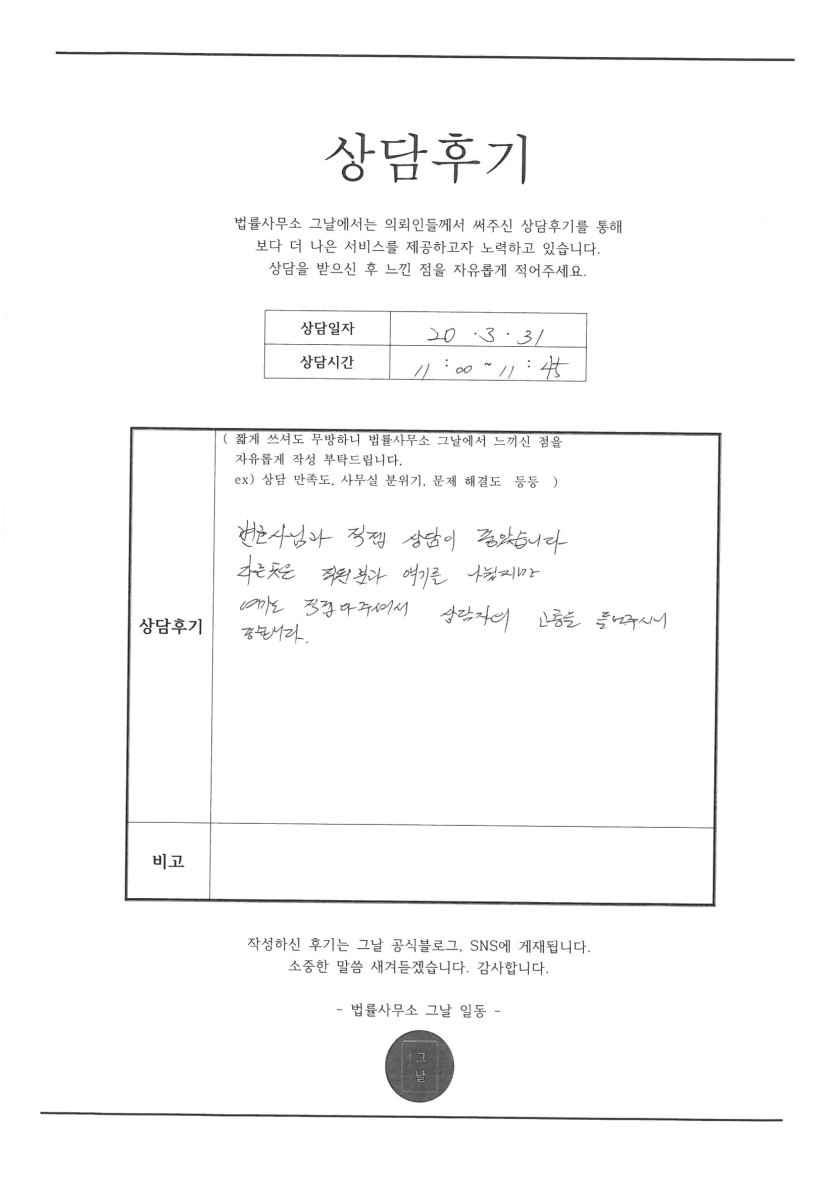 상담후기
법률사무소 그날에서는 의뢰인들께서 써주신 상담후기를 통해
보다 더 나은 서비스를 제공하고자 노력하고 있습니다.
상담을 받으신 후 느낀 점을 자유롭게 적어주세요.
상담일자 20 . 3 . 31
상담시간 11 : 00 ~ 11 : 45
( 짧게 쓰셔도 무방하니 법률사무소 그날에서 느끼신 점을
자유롭게 작성 부탁드립니다.
ex) 상담 만족도, 사무실 분위기, 문제 해결도 등등 )
변호사님과 직접 상담이 좋았습니다
다른곳은 직원분과 얘기를 나눴지만
직접 상담자의 고통을 들어주시니
좋습니다.
상담후기
비고
작성하신 후기는 그날 공식블로그, SNS에 게재됩니다.
소중한 말씀 새겨듣겠습니다. 감사합니다.
- 법률사무소 그날 일동 -
그
날